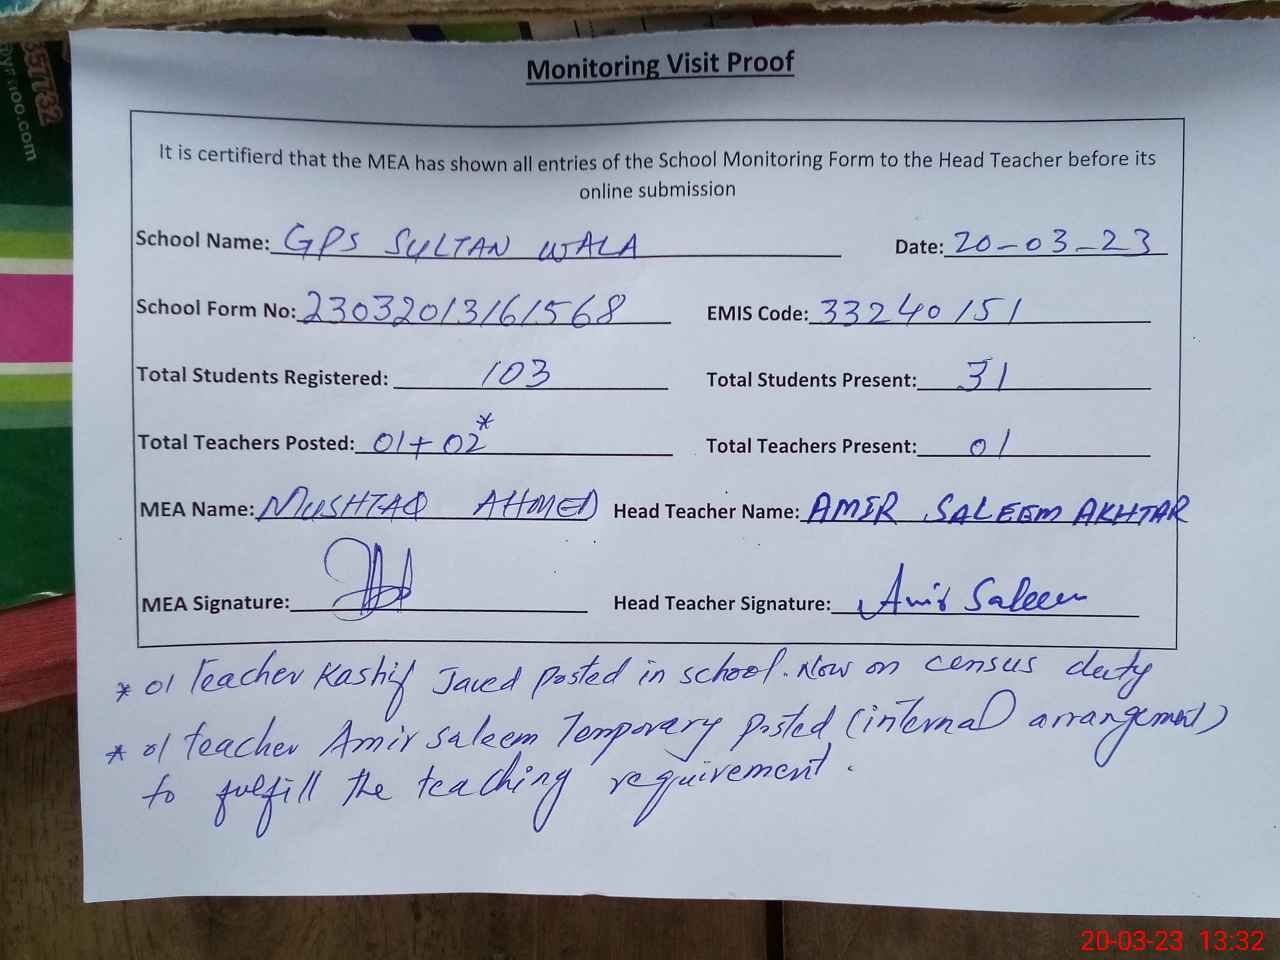 357732
Monitoring Visit Proof
It is certifierd that the MEA has shown all entries of the School Monitoring Form to the Head Teacher before its
online submission
School Name: GPS SULTAN WALA Date: 20-03-23
School Form No: 23032013161568 EMIS Code: 33240151
Total Students Registered: 103 Total Students Present: 31
Total Teachers Posted: 01+02* Total Teachers Present: 01
MEA Name: MUSHTAQ AHMED Head Teacher Name: AMIR SALEEM AKHTAR
MEA Signature: Head Teacher Signature: Amir Saleem
* 01 Teacher Kashif Javed Posted in school. Now on census duty
* 01 teacher Amir Saleem Temporary posted (internal arrangement)
to fulfill the teaching requirement.
20-03-23 13:32